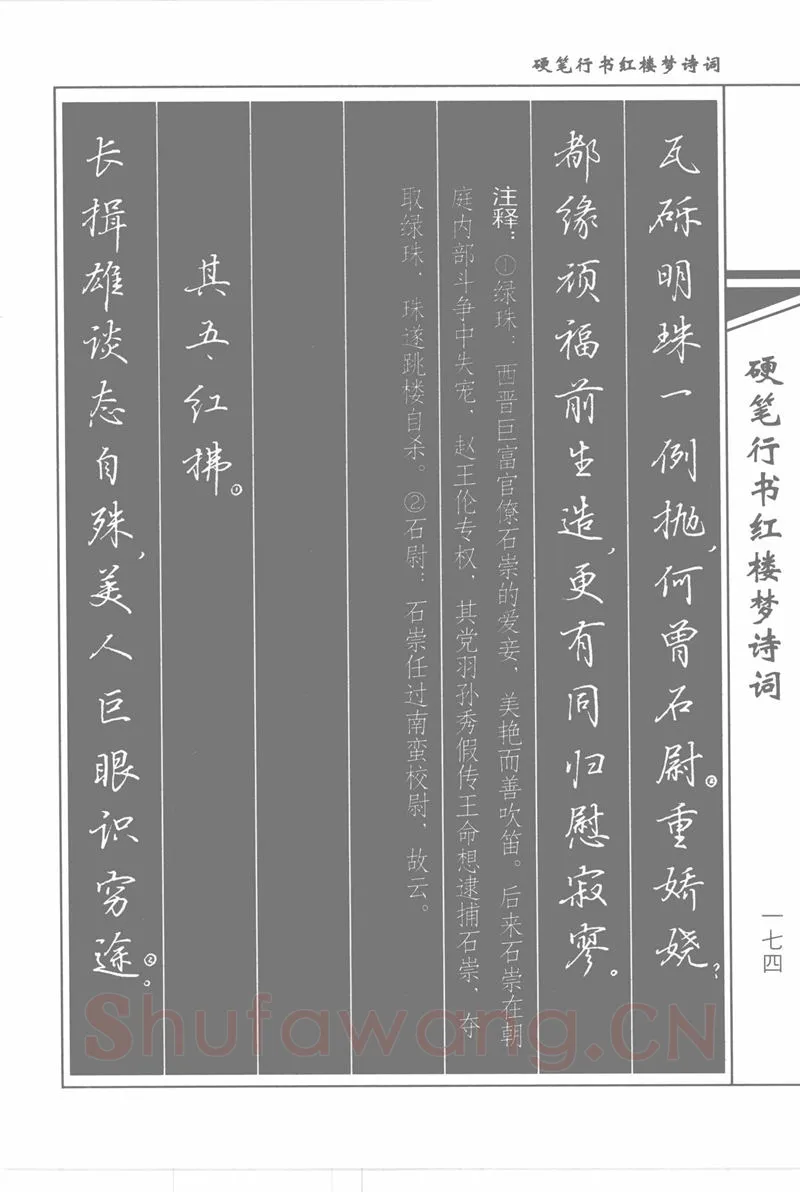 硬笔行书红楼梦诗词
瓦砾明珠一例抛，何曾石尉②重娇娆？
都缘顽福前生造，更有同归慰寂寥。
注释：①绿珠：西晋巨富官僚石崇的爱妾，美艳而善吹笛。后来石崇在朝
庭内部斗争中失宠，赵王伦专权，其党羽孙秀假传王命想逮捕石崇、夺
取绿珠，珠遂跳楼自杀。②石尉：石崇任过南蛮校尉，故云。
其五、红拂①
长揖雄谈态自殊，美人巨眼识穷途②。
硬笔行书红楼梦诗词
一七四
Shufawang.CN